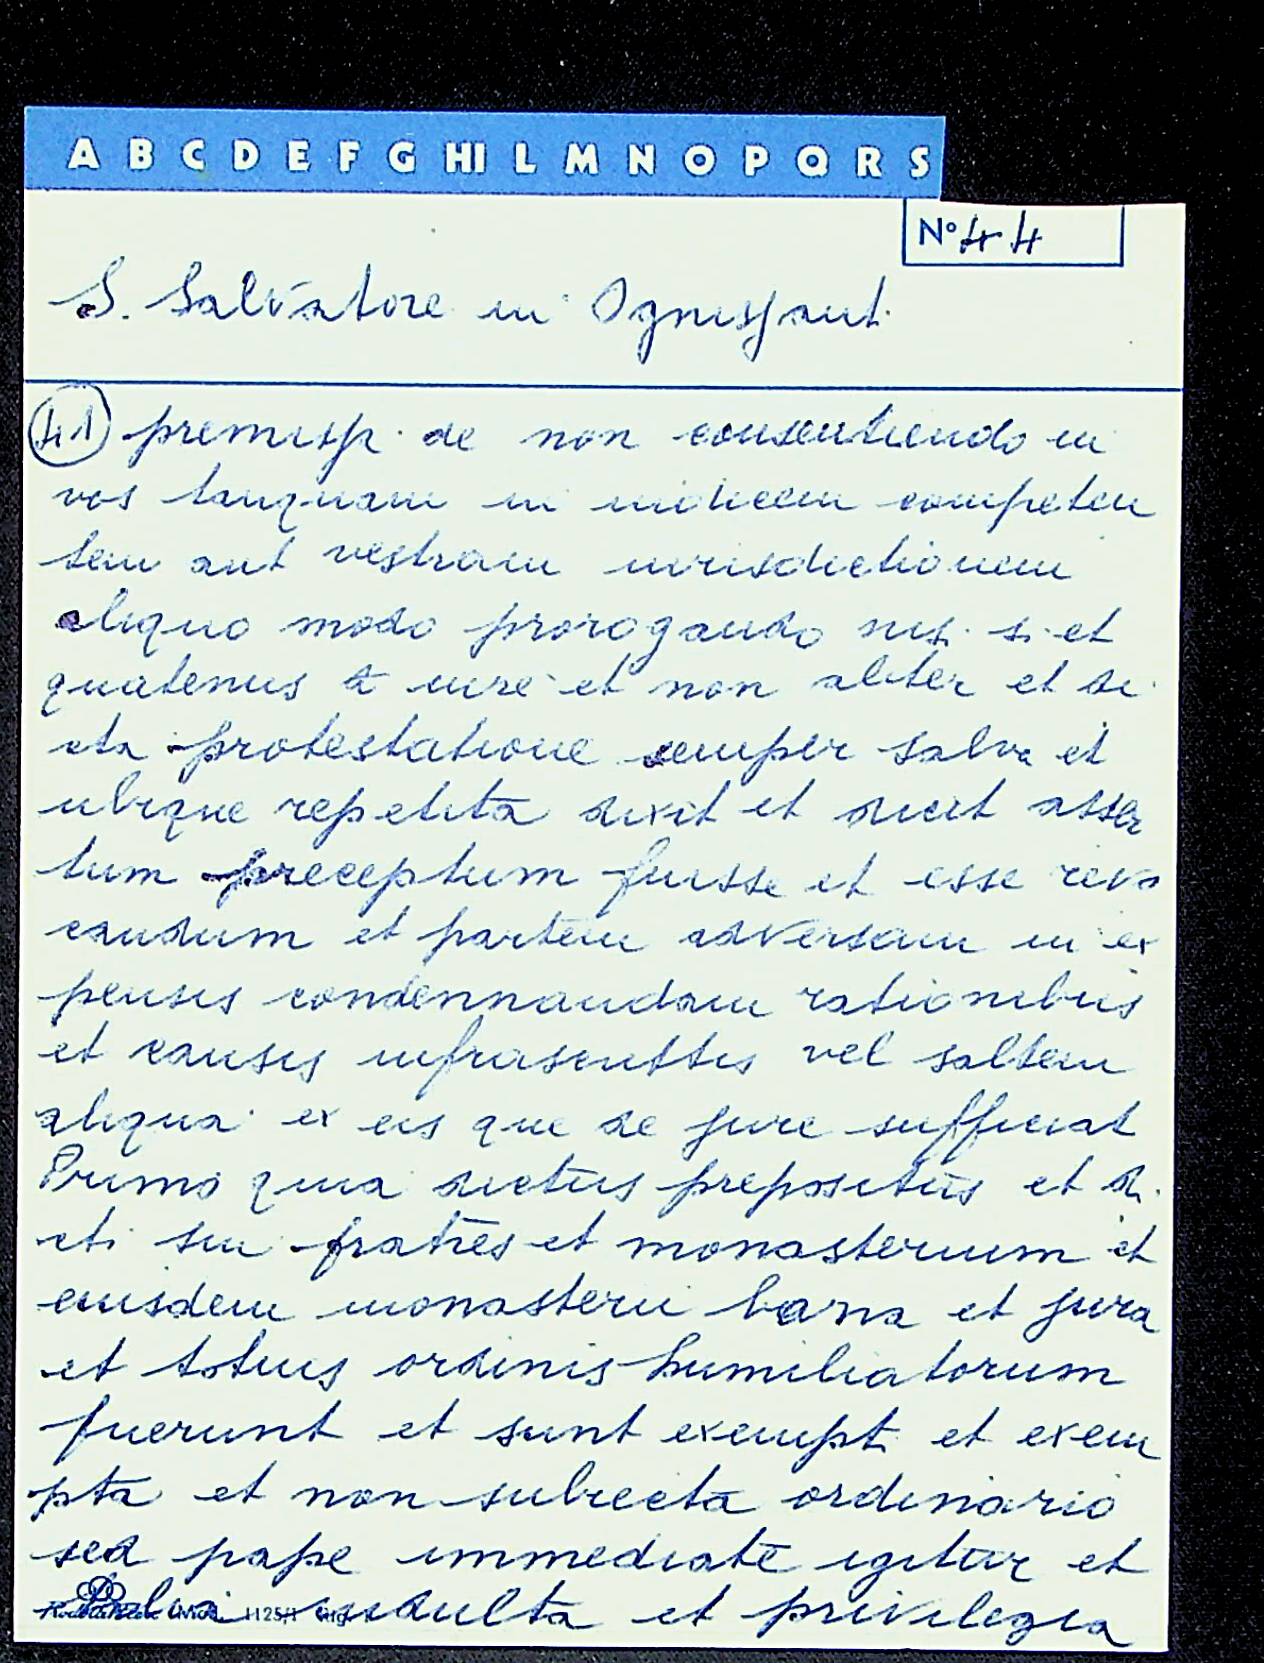 A B C D E F G HI L M N O P Q R S
N° 44
S. Salvatore in Ognissanti
41 premissi de non consentiendo in
vos tanquam in iudicem competen
tem aut vestram iurisdictionem
aliquo modo prorogando nisi si et
quatenus a iure et non aliter et di
cta protestatione semper salva et
ubique repetita dixit et dicit asser
tum preceptum fuisse et esse revo
candum et partem adversam in ex
pensis condennandam rationibus
et causis infrascrittis vel saltem
aliqua ex eis que de jure sufficiat
Primo quia dictus prepositus et di
cti sui fratres et monasterium et
eiusdem monasterii bona et jura
et totius ordinis humiliatorum
fuerunt et sunt exempti et exem
pta et non subiecta ordinario
sed pape immediate igitur et
indulta et privilegia
Mod. 1125/1